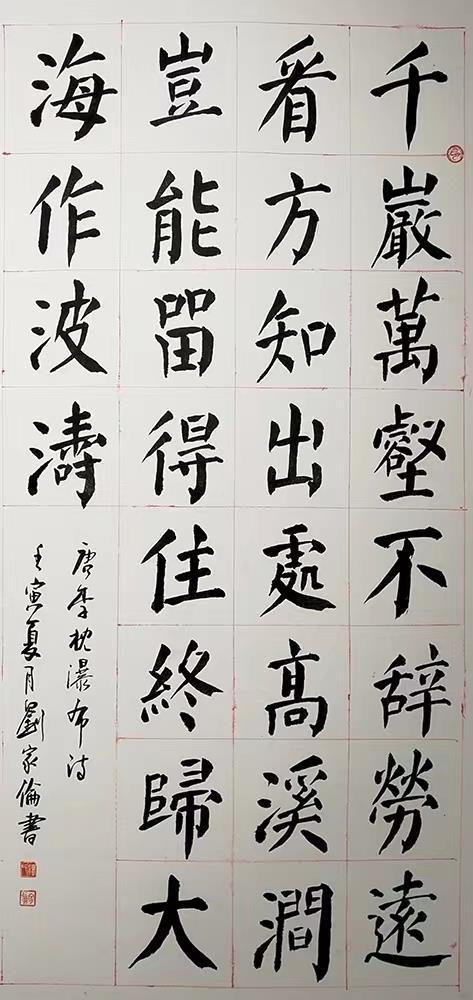 千巖萬壑不辞勞遠
看方知出處高溪澗
豈能留得住終歸大
海作波濤
唐李忱瀑布诗
壬寅夏月劉家倫書